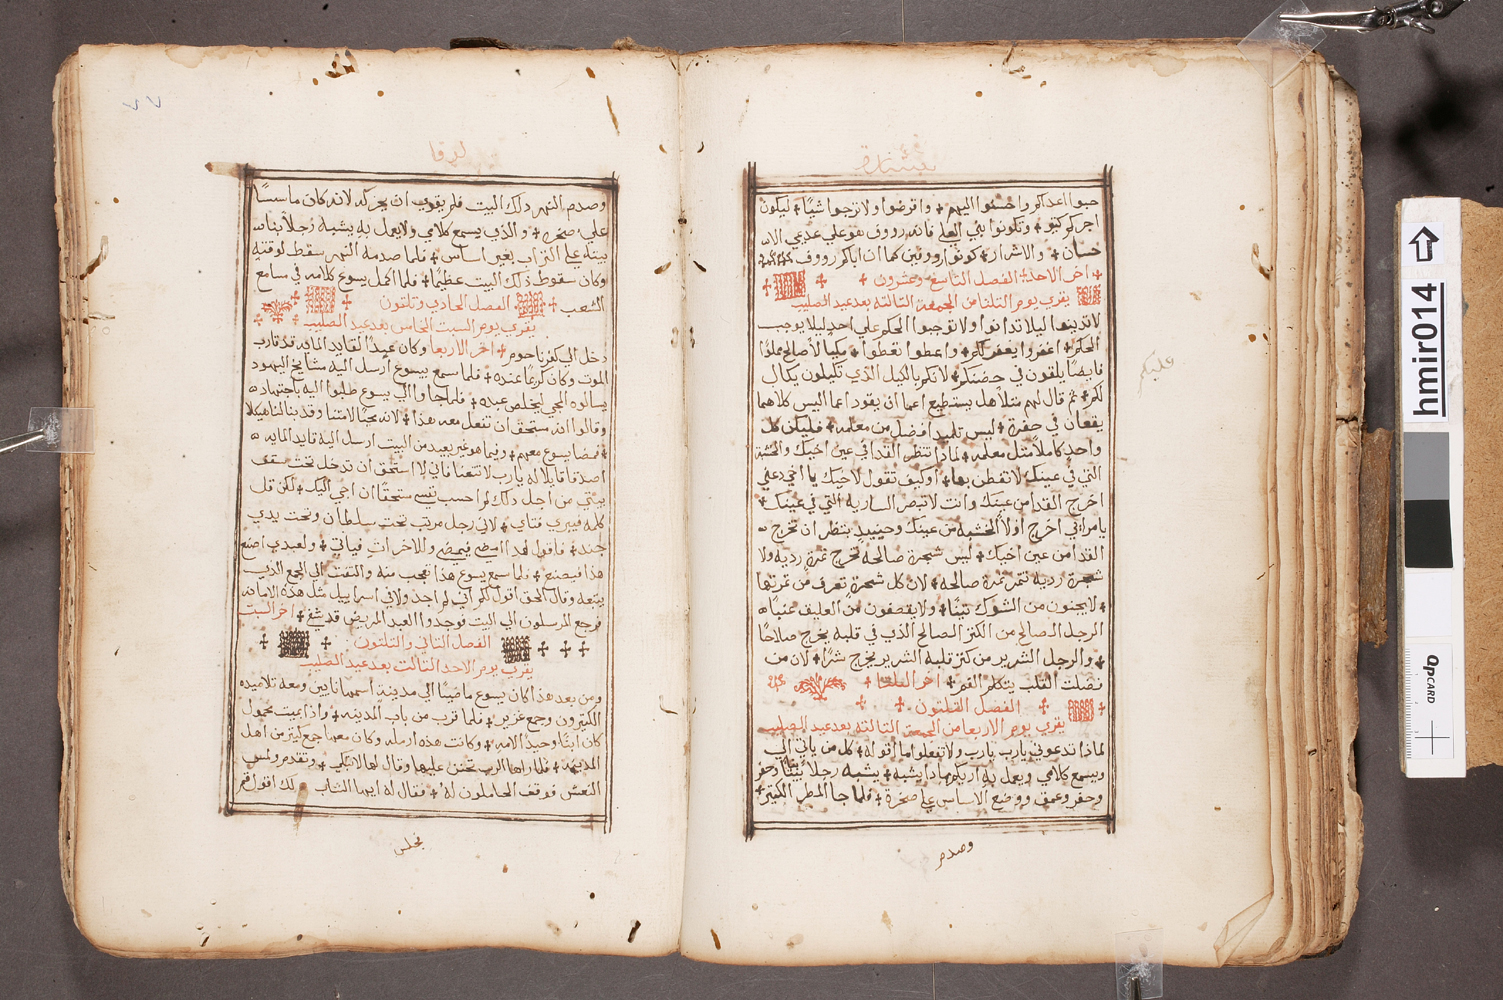 بشارة
حبوا اعداكم واحسنوا اليهم ✢ واقرضوا ولا ترجوا شيًا ✢ ليكون
اجركم كتير ✢ وتكونوا بني العلي فانه رووف هو علي عديمي الاـ
حسان ✢ والاشرار ✢ كونوا رووفين كما ان اباكم رووف
✢ اخر الاحد ✢ الفصل التاسع وعشرون ✢
يقري يوم التلتا من الجمعة التالته بعد عيد الصليب
لا تدينوا ليلا تدانوا ولا توجبوا الحكم علي احد ليلا يوجب
الحكم ✢ اغفروا يغفر لكم ✢ واعطوا تعطوا ✢ مكيا لا صالح مملوا
فايضا يلقون في حضنكم ✢ لانكم بالكيل الذي تكيلون يكال
لكم ✢ تم قال لهم متلا هل يستطيع اعما ان يقود اعما اليس كلاهما
يقعان في حفرة ✢ ليس تلميد افضل من معلمه ✢ فليكن كل
واحد كاملا متل معلمه ✢ لمادا تنظر القدا في عين اخيك والخشبة
التي في عينك لا تفطن بها ✢ او كيف تقول لاخيك يا اخي دعني
اخرج القدا من عينك وانت لا تبصر الساريه التي في عينك ✢
يا مرااي اخرج اولا الخشبه من عينك وحينيد ينظر ان تخرج
القدا من عين اخيك ✢ ليس شجرة صالحه تخرج تمرة رديه ولا
شجرة رديه تتمر تمرة صالحه ✢ لان كل شجرة تعرف من تمرتها
✢ لا يجنون من الشوك تينًا ✢ ولا يقطفون من العليق عنبًا
الرجل الصالح من الكنز الصالح الذي في قلبه يخرج صلاحًا
✢ والرجل الشرير من كنز قلبه الشرير يخرج شرًا ✢ لان من
فضلت القلب يتكلم الفم ✢ اخر التلتا ✢
✢ الفصل التلتون ✢ ✢
يقري يوم الاربعا من الجمعة التالته بعد عيد الصليب
لمادا تدعوني يارب يارب ولا تفعلوا ما اقوله ✢ كل من ياتي الي
ويسمع كلامي ويعمل به اريكم مادا يشبه ✢ يشبه رجلا بنى بيتًا وحفر
وحفر وعمق ووضع الاساس علي صخرة ✢ فلما جا المطر الكتير ✢
وصدم
عليكم
٦٧
لوقا
وصدم النهر دلك البيت فلم يقوي ان يحركه لانه كان ماسسًا
علي صخرة ✢ والذي يسمع كلامي ولا يعمل به يشبه رجلا بنا
بيته علي التراب بغير اساس ✢ فلما صدمه النهر سقط لوقته
وكان سقوط ذلك البيت عظيمًا ✢ فلما اكمل يسوع كلامه في مسامع
الشعب ✢ الفصل الحادي وتلتون ✢
يقري يوم السبت الخامس بعد عيد الصليب
دخل الي كفرناحوم ✢ اخر الاربعا وكان عبدًا لقايد المايه قد قارب
الموت وكان كريمًا عنده ✢ فلما سمع بيسوع ارسل اليه مشايخ اليهود
يسالوه المجي ليخلص عبده ✢ فلما جاوا الي يسوع طلبوا اليه باجتهاد
وقالوا انه مستحق ان تفعل معه هذا ✢ لانه محبًا لامتنا وقد بنا لنا هيكلا
✢ فمضا يسوع معهم ✢ وبما هو غير بعيد من البيت ارسل اليه قايد المايه
اصدقا قايلا له يارب لا تتعنا فاني لا استحق ان تدخل تحت سقف
بيتي من اجل دلك لم احسب نفسي مستحقًا ان اجي اليك ✢ لكن قل
كلمه فيبري فتاي ✢ لاني رجل مرتب تحت سلطان وتحت يدي
جند ✢ فاقول لهدا امضي فيمضي وللاخر ات فياتي ✢ ولعبدي اصنع
هذا فيصنع ✢ فلما سمع يسوع هذا تعجب منه والتفت الي الجمع الذي
يتبعه وقال الحق اقول لكم اني لم اجد ولا في اسراييل متل هذه الامانه
فرجع المرسلون الي البيت فوجدوا العبد المريض قد شفي ✢ اخر السبت
✢ ✢ ✢ الفصل التاني والتلتون ✢ ✢
يقري يوم الاحد التالت بعد عيد الصليب
ومن بعد هذا كان يسوع ماضيًا الي مدينة اسمها نايين ومعه تلاميده
الكتيرون وجمع غزير ✢ فلما قرب من باب المدينه ✢ واذا بميت محمول
كان ابنًا وحيدًا لامه ✢ وكانت هذه ارمله وكان معها جمع كتير من اهل
المدينه ✢ فلما راها الرب تحنن عليها وقال لها لا تبكي ✢ وتقدم ولمس
النعش فوقف الحاملون له ✢ فقال له ايها الشاب لك اقول قم
فجلس
hmir014
QP CARD